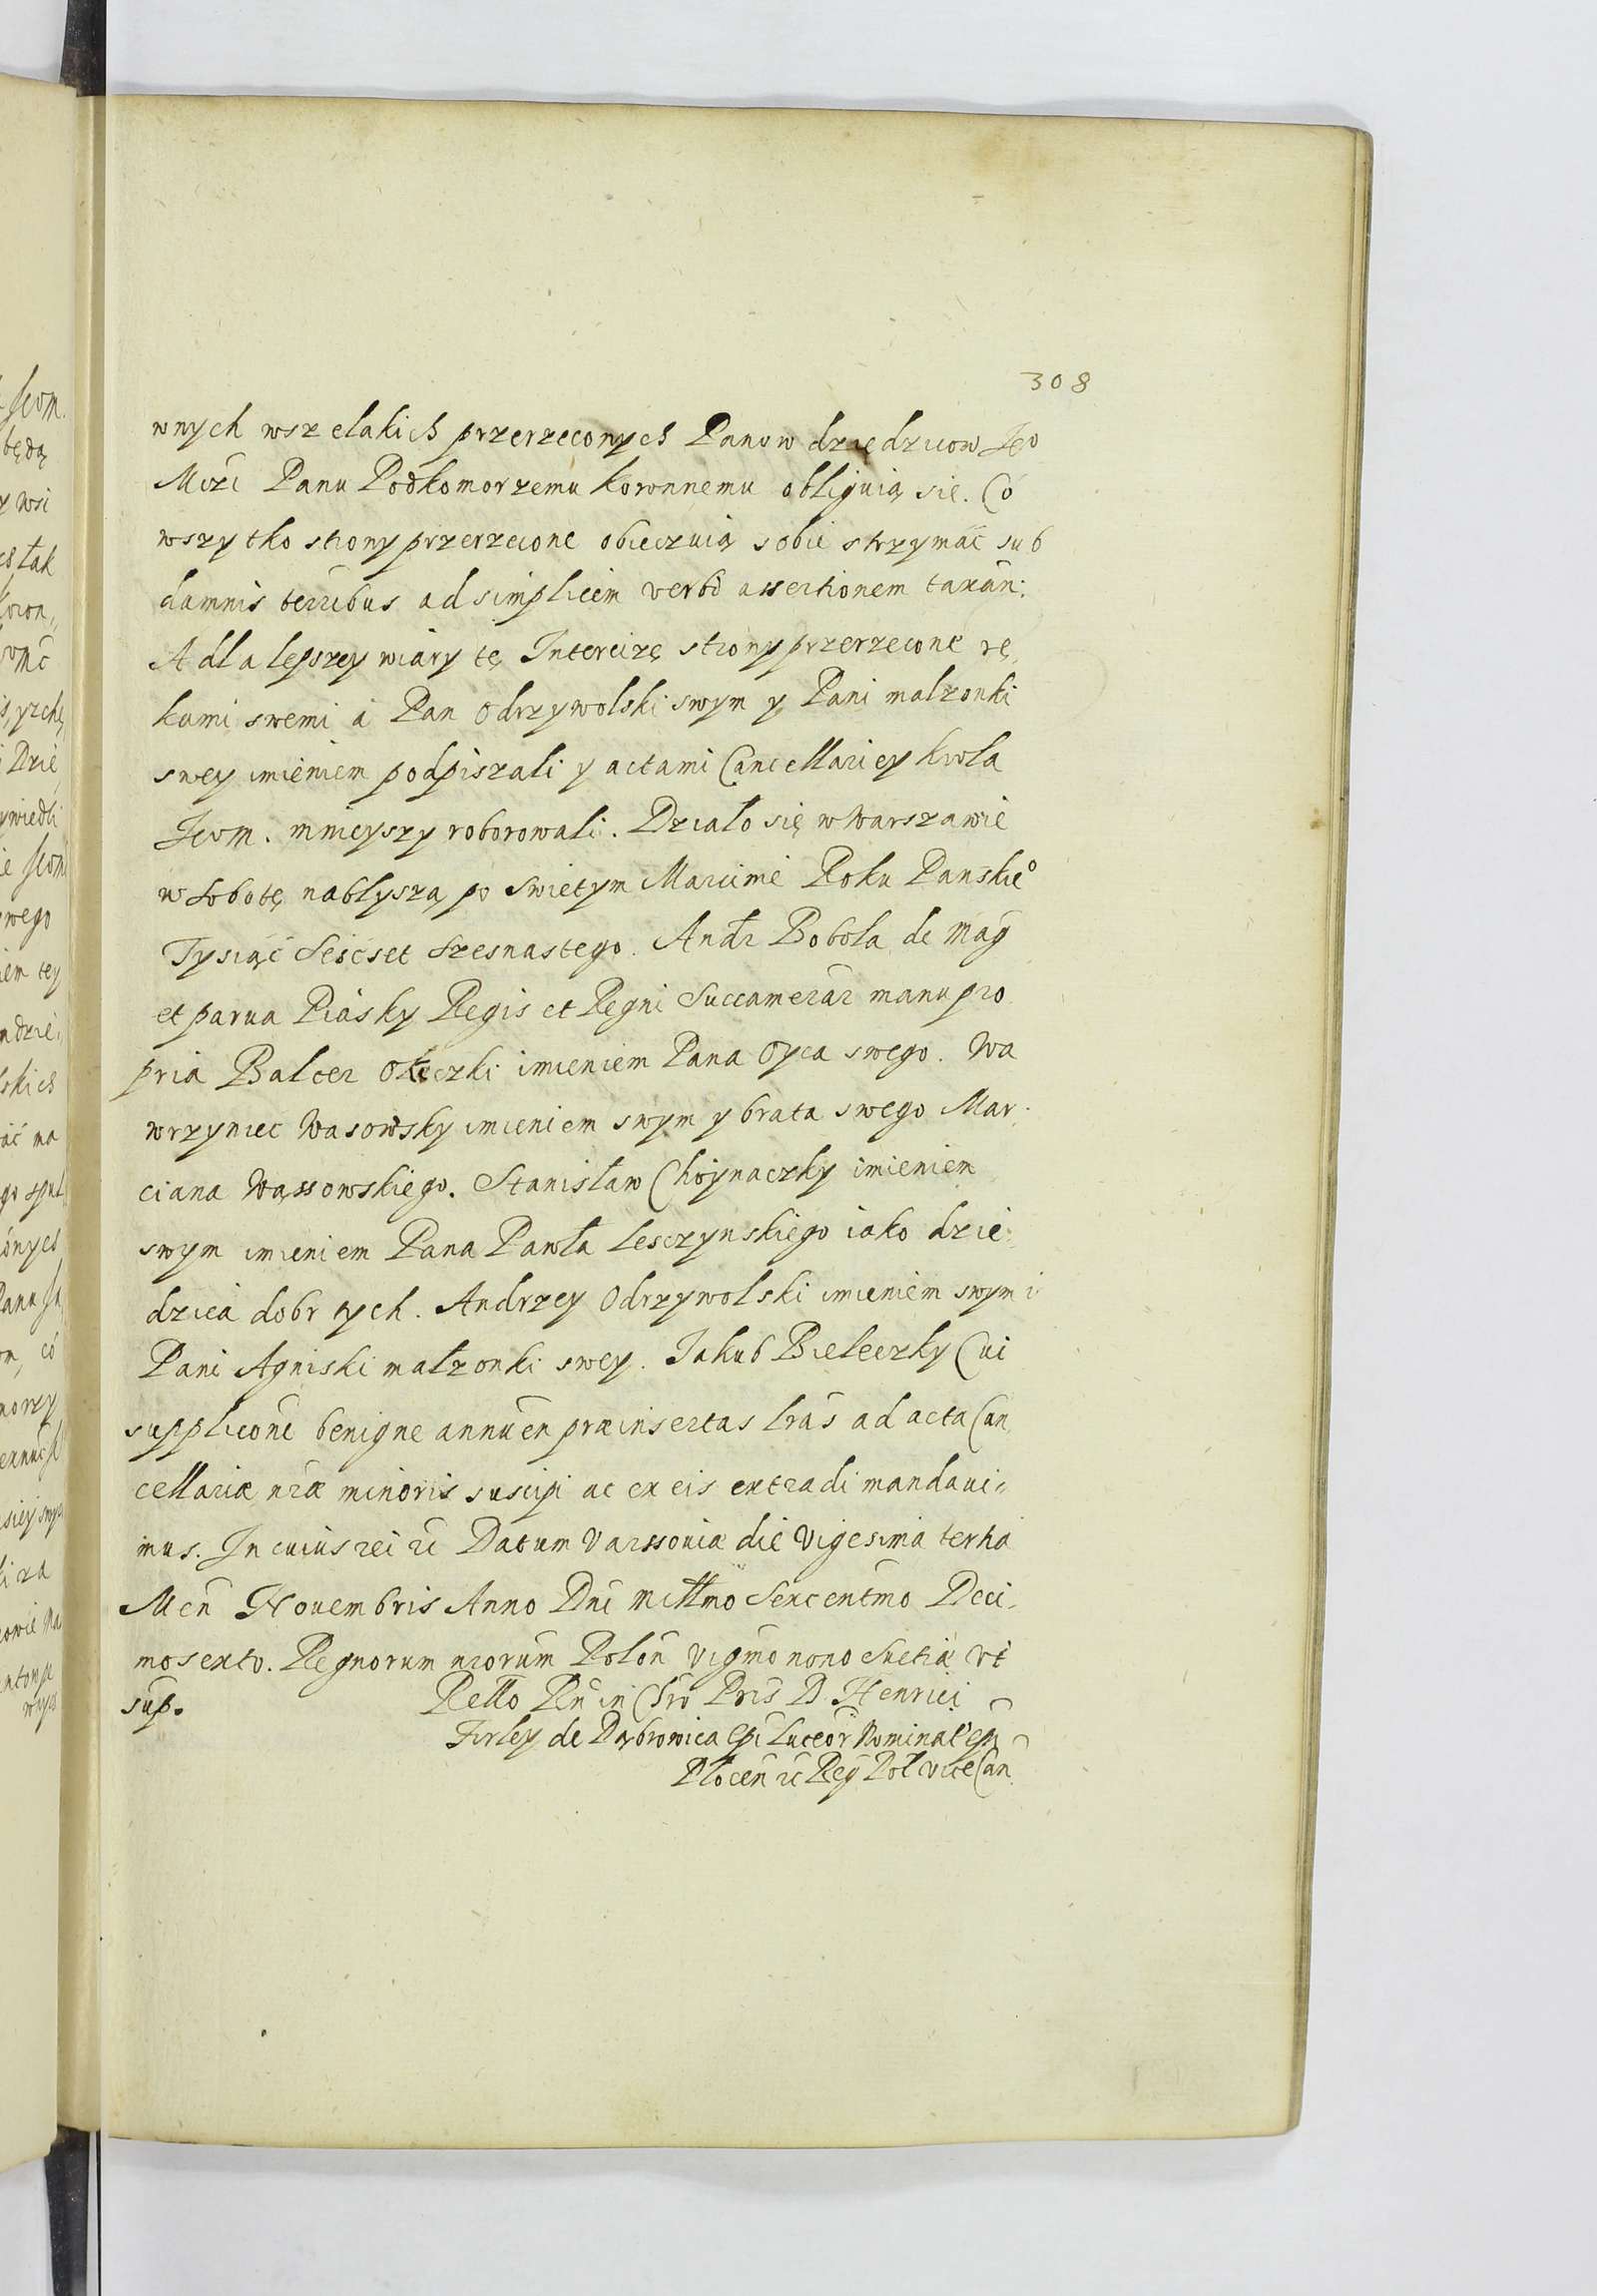 308
wnych wszelakich przerzeconych Panow dziędzicow Jeo
Mczi Panu Podkomorzemu Koronnemu obliguią się. Co
wszytko strony przerzecione obieczuią sobie strzymać sub
damnis terribus ad simplicem verbo assertionem taxan:
A dla lepszey wiary tę Intercizę strony przerzecone rę,
kami swemi a Pan Odrzywolski swym y Pani malzonki
swey imieniem podpiszali y actami Cancellariey Krola
Jeom. mnieyszy roborowali. Działo się w Warszawie
w Sobotę nablyszą po Swietym Marcinie Roku Panskieo
Tysiąć Sescset Szesnastego. Andr Bobola de Mag
et parua Piasky Regis et Regni Succamerar manu pro
pria Balcer Okeczki imieniem Pana Oyca swego. Wa
wrzyniec Wasowsky imieniem swym y brata swego Mar.
ciana Wąssowskiego. Stanisław Choynaczky imieniem
swym imieniem Pana Pawła Lesczynskiego iako dzie
dzica dobr tych. Andrzey Odrzywolski imieniem swym i
Pani Agniski małzonki swey. Jakub Bieleczky Cui
supplicōni benigne annuen præinsertas lrās ad acta Can
cellariæ nræ minoris suscipi ac ex eis extradi mandaui=
mus. In cuius rei rc Datum Varssouiæ die Vigesima tertia
Men Nouembris Anno Dni Millmo Sexcentmo Deci.
mosexto. Regnorum nrorum Polon vigmo nono Suetiæ vt
sup.
Rello Rn in Chro Pris D. Henrici
Firley de Dąbrowica Epi Luceor Nominat Epi
Plocen rc Reg Pol viceCan